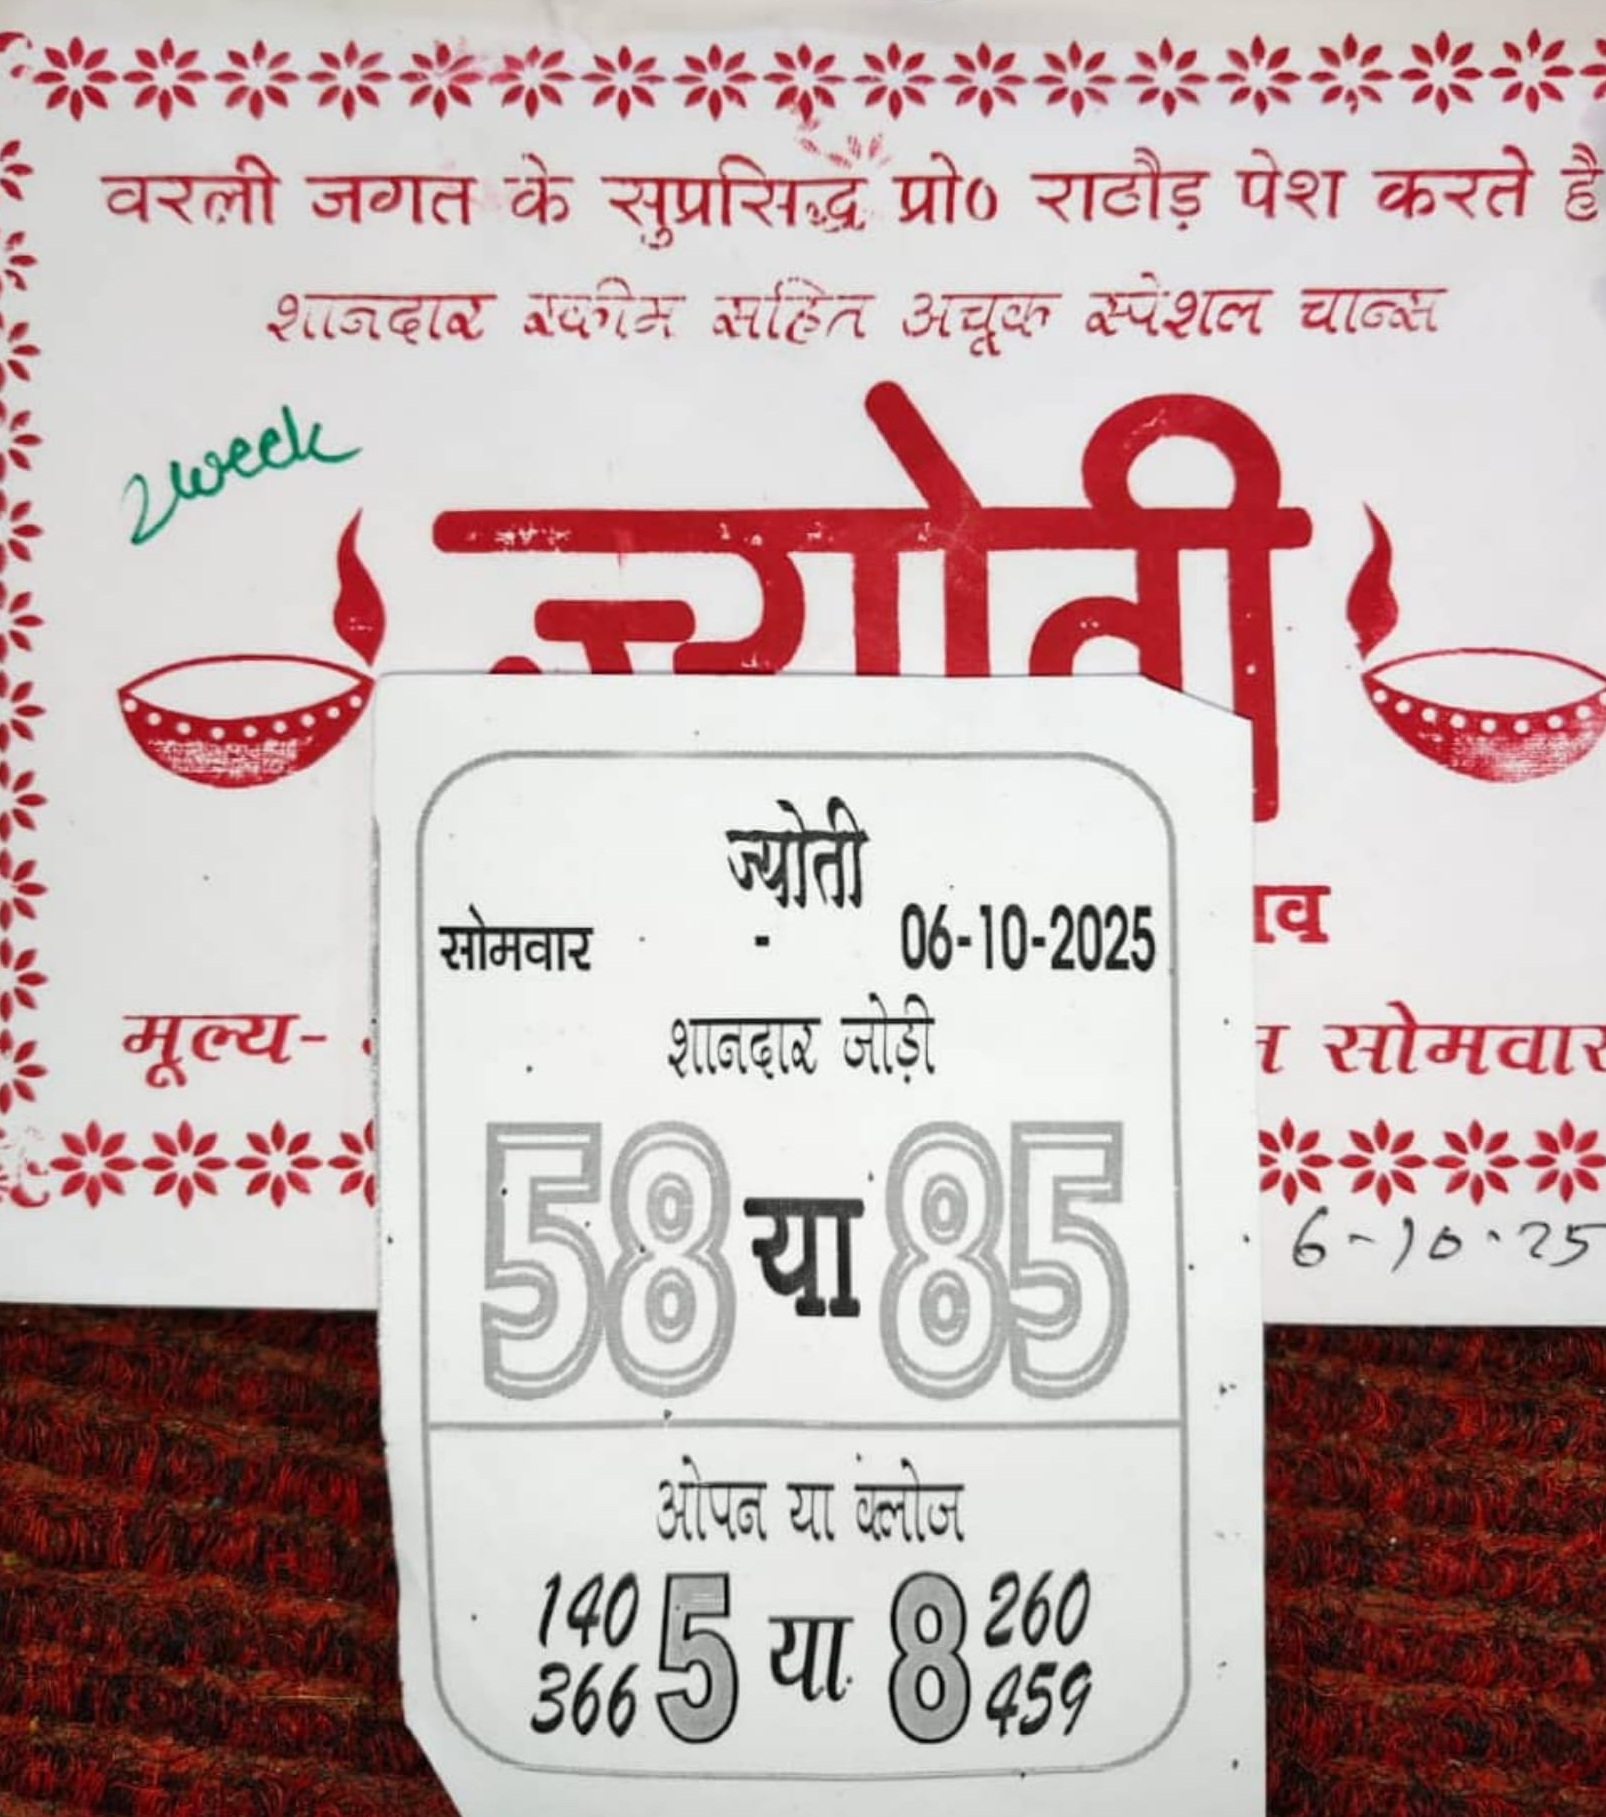 वरली जगत के सुप्रसिद्ध प्रो० राठौड़ पेश करते है
शानदार स्कीम सहित अचूक स्पेशल चान्स
2 week
ज्योती
ज्योती
सोमवार - 06-10-2025
शानदार जोड़ी
58 या 85
ओपन या क्लोज
140 5 या 8 260
366 459
मूल्य- सोमवार
6-10-25